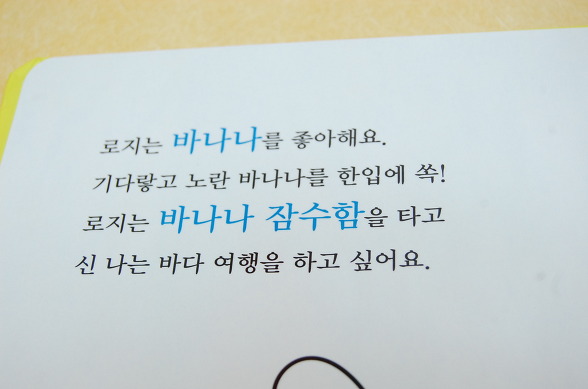 로지는 바나나를 좋아해요.
기다랗고 노란 바나나를 한입에 쏙!
로지는 바나나 잠수함을 타고
신 나는 바다 여행을 하고 싶어요.